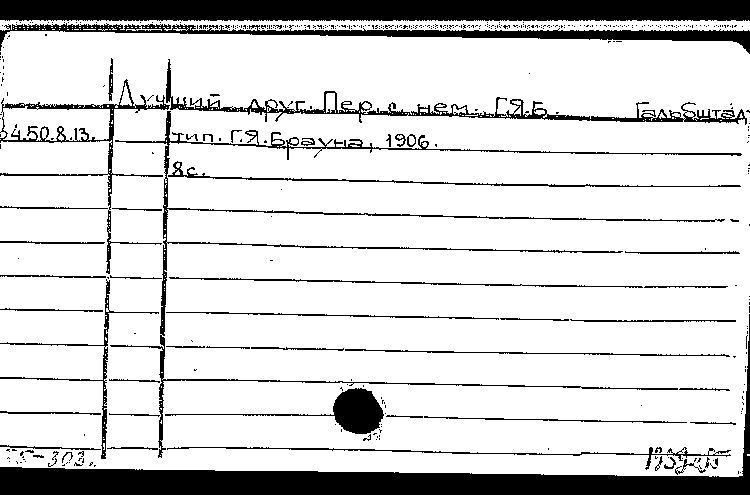 Лучший друг. Пер. с нем. Г.Я.Б. Гальбштадт
34.50.8.13. тип. Г.Я.Брауна, 1906.
8с.